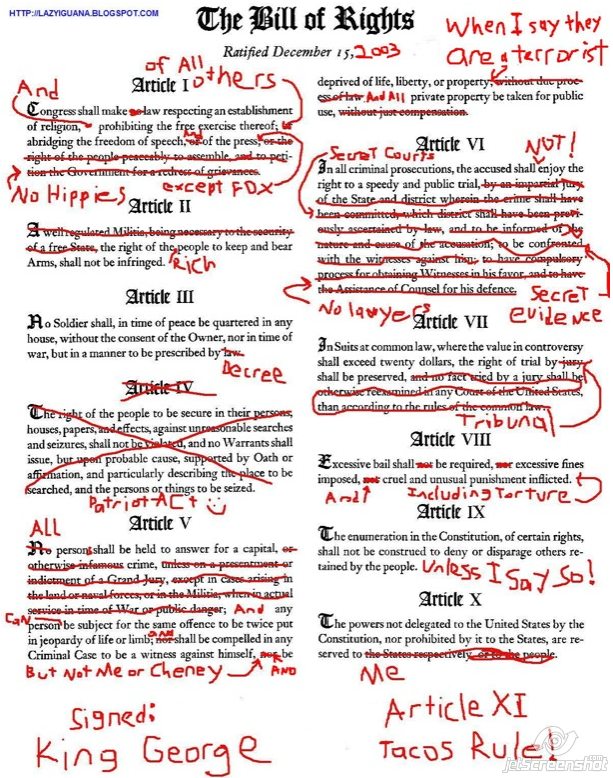 HTTP://LAZYIGUANA.BLOGSPOT.COM
The Bill of Rights
Ratified December 15, 2003
of All
others
And
Article I
Congress shall make no law respecting an establishment
of religion, prohibiting the free exercise thereof; or
And
abridging the freedom of speech, or of the press, or the
right of the people peaceably to assemble, and to peti-
tion the Government for a redress of grievances.
No Hippies
except FOX
Article II
A well regulated Militia, being necessary to the security
of a free State, the right of the people to keep and bear
Arms, shall not be infringed.
Rich
Article III
No Soldier shall, in time of peace be quartered in any
house, without the consent of the Owner, nor in time of
war, but in a manner to be prescribed by law.
Decree
Article IV
The right of the people to be secure in their persons,
houses, papers, and effects, against unreasonable searches
and seizures, shall not be violated, and no Warrants shall
issue, but upon probable cause, supported by Oath or
affirmation, and particularly describing the place to be
searched, and the persons or things to be seized.
Patriot Act
Article V
All
No person shall be held to answer for a capital, or
otherwise infamous crime, unless on a presentment or
indictment of a Grand Jury, except in cases arising in
the land or naval forces, or in the Militia, when in actual
service in time of War or public danger; And any
can
person be subject for the same offence to be twice put
in jeopardy of life or limb; nor shall be compelled in any
and
Criminal Case to be a witness against himself, nor be
But Not Me or Cheney
AND
Signed:
King George
When I say they
are a terrorist
deprived of life, liberty, or property, without due proc-
ess of law And All private property be taken for public
use, without just compensation.
Article VI
Secret Courts
NOT!
In all criminal prosecutions, the accused shall enjoy the
right to a speedy and public trial, by an impartial jury
of the State and district wherein the crime shall have
been committed, which district shall have been previ-
ously ascertained by law, and to be informed of the
nature and cause of the accusation; to be confronted
with the witnesses against him; to have compulsory
process for obtaining Witnesses in his favor, and to have
the Assistance of Counsel for his defence.
No lawyers
Secret
evidence
Article VII
In Suits at common law, where the value in controversy
shall exceed twenty dollars, the right of trial by jury
shall be preserved, and no fact tried by a jury shall be
otherwise reexamined in any Court of the United States,
than according to the rules of the common law.
Tribunal
Article VIII
Excessive bail shall not be required, nor excessive fines
imposed, nor cruel and unusual punishment inflicted.
And
Including torture
Article IX
The enumeration in the Constitution, of certain rights,
shall not be construed to deny or disparage others re-
tained by the people.
Unless I Say So!
Article X
The powers not delegated to the United States by the
Constitution, nor prohibited by it to the States, are re-
served to the States respectively, or to the people.
Me
Article XI
Tacos Rule!
jetscreenshot
.com